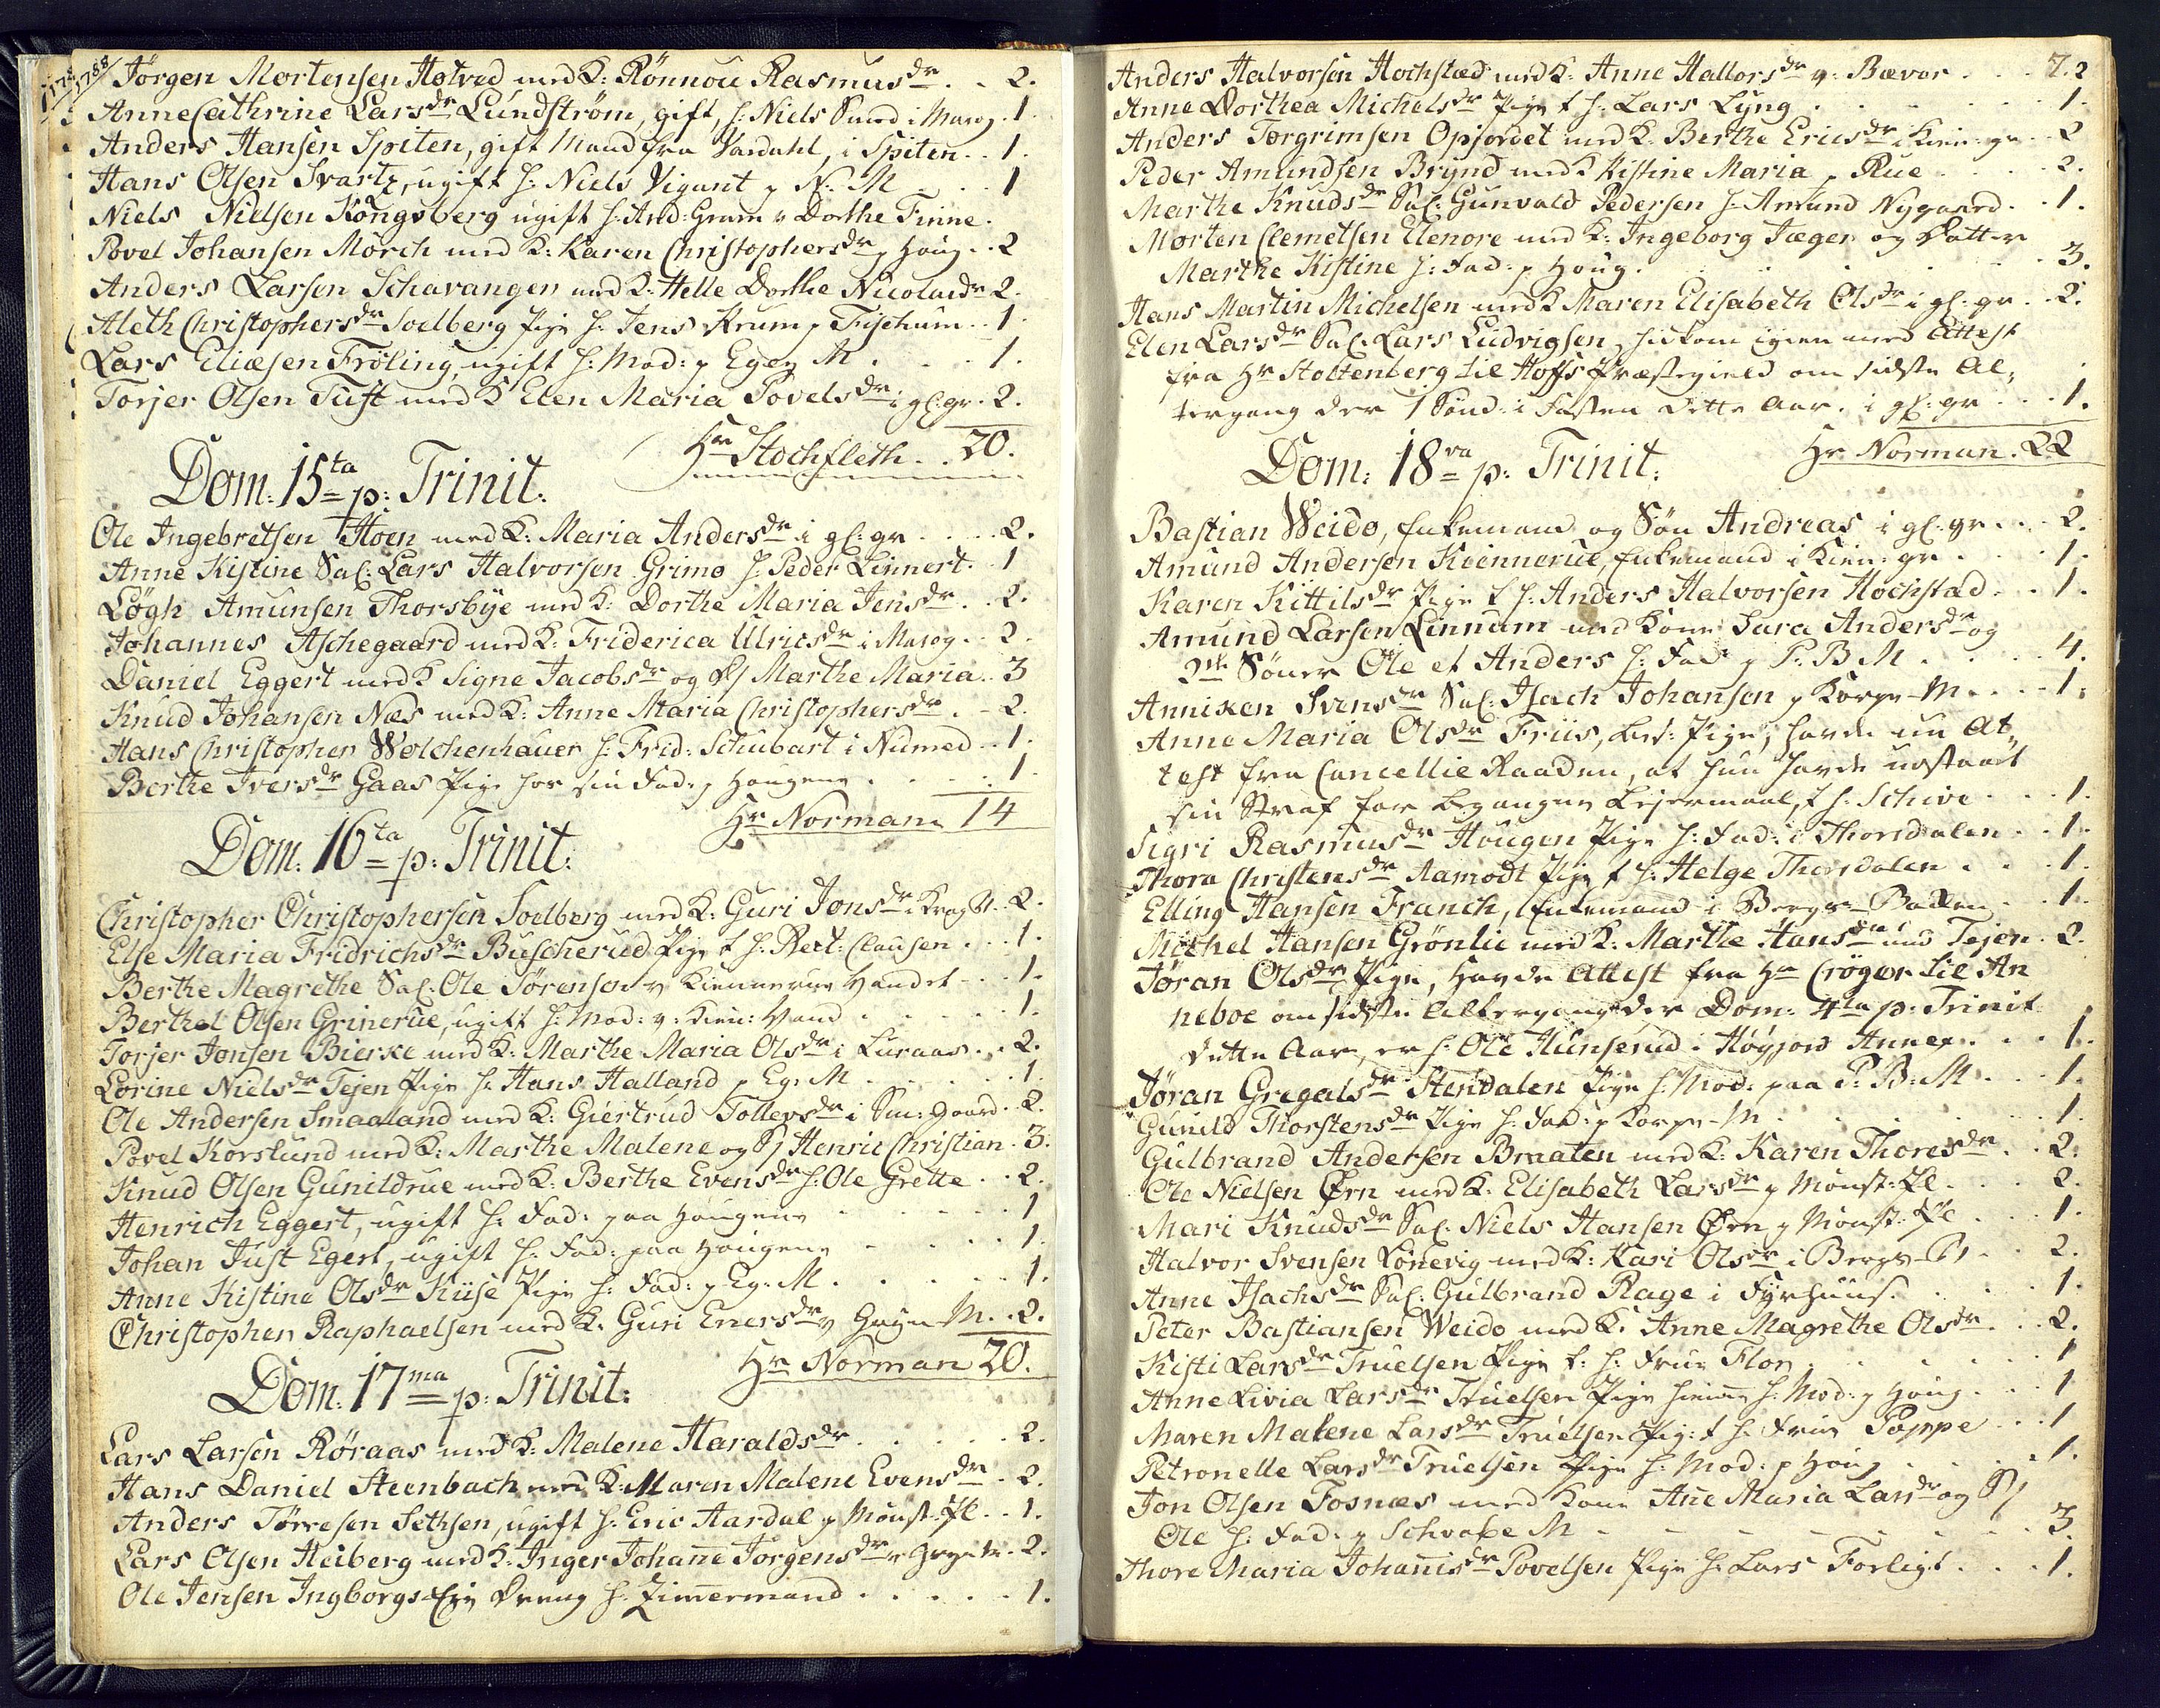 1788 Jörgen Mortensen Hotved med K: Rönnou Rasmusdr . . 2.
Anne Cathrine Larsdr Lundström, gift, h: Niels Smed i Marg. 1.
Anders Hansen Spiten, gift Mand fra Vardahl, i Spiten . . 1.
Hans Olsen Svartz, ugift h: Niels Vigant p N. M . . 1
Niels Nielsen Kongsberg ugift h: And: Gram v Dorthe Finne.
Povel Johansen Mörch med K: Karen Christophersdr p Houg . . 2
Anders Larsen Schavangen med K: Helle Dorthe Nicolaidr 2.
Aleth Christophersdr Soelberg Pige h: Jens Krum p Fischum . . 1.
Lars Eliæsen Fröling, ugift h: Mod: p Egen M . . . 1.
Torjer Olsen Tuft med K Elen Maria Povelsdr i gl: gr. 2.
Hr Stochfleth . . 20.
Dom: 15ta p: Trinit:
Ole Ingebretsen Hoen med K: Maria Andersdr i gl: gr . . . . 2.
Anne Kistine Sal: Lars Halvorsen Grimo h: Peder Linnert. 1
Lögh Amunsen Thorsbye med K: Dorthe Maria Jensdr . . 2.
Johannes Aschegaard med K: Friderica Ulricsdr i Marg . . 2.
Daniel Eggert med K Signe Jacobsdr og D/ Marthe Maria . . 3
Knud Johansen Næs med K: Anne Maria Christophersdr . . 2.
Hans Christopher Wolchenhauer h: Frid: Schubart i Numed . . 1.
Berthe Iversdr Gaas Pige hos sin Fad: p Hougene . . . 1.
Hr Norman 14
Dom: 16ta p: Trinit:
Christopher Christophersen Soelberg med K: Guri Jonsdr i Krag St. 2.
Else Maria Fridrichsdr Buscherud Pige t h: Rect: Clausen . . . 1.
Berthe Magrethe Sal: Ole Sörensen v Kiennerue Vandet . . 1.
Berthel Olsen Grinerue, ugift h: Mod: v: Kien: Vand . . . . 1.
Torjer Jonsen Bierke med K: Marthe Maria Olsdr i Luraas . . 2.
Lorine Nielsdr Tejen Pige h: Hans Halland p Eg. M . . . . 1.
Ole Andersen Smaaland med K: Giertrud Tollevsdr i Sm: gaard . 2.
Povel Korslund med K: Marthe Malene og S/ Henric Christian . 3.
Knud Olsen Gunildrue med K: Berthe Evensdr h: Ole Grette . . 2.
Henrich Eggert, ugift h: Fad: paa Hougene . . . . 1
Johan Just Egert, ugift h: Fad: paa Hougene . . . . 1.
Anne Kistine Olsdr Kiise Pige h: Fad: p Eg. M . . . . . 1.
Christopher Raphaelsen med K. Guri Enersdr v Gryn M . . 2.
Hr Norman 20.
Dom: 17ma p: Trinit:
Lars Larsen Röraas med K: Malene Haraldsdr . . . . . 2.
Hans Daniel Steenbach med K: Maren Malene Evensdr . 2.
Anders Törresen Sethsen, ugift h: Eric Aardal p Mönst. Pl . . 1.
Lars Olsen Heiberg med K: Inger Johane Jörgensdr v Gryn M . 2.
Ole Jensen Ingborgs-Eje Dreng h: Zimermand . . . . . 1.
Anders Halvorsen Hochstæd med K: Anne Hallorsdr v: Bævor . . . 7. 2
Anne Dorthea Michelsdr Pige t h: Lars Lyng . . . . . 1.
Anders Torgrimsen Opjordet med K. Berthe Ericsdr i Kien: gr . . 2
Peder Amundsen Brynd med K Kistine Maria p Rue . . . 2.
Marthe Knudsdr Sal: Gunvald Pedersen h: Amund Nygaard . . 1.
Morten Clemetsen Elenore med K: Ingeborg Jæger og Datter
Marthe Kistine h: Fad: p Houg. . . . . 3.
Hans Martin Michelsen med K Maren Elisabeth Olsdr i gl: gr . . 2.
Elen Larsdr Sal: Lars Ludvigsen, hidkom igien med Attest
fra Hr Stoltenberg til Hofs Præstegield om sidste Al„
tergang der 1 Sønd: i Fasten dette Aar. i gl: gr . . . 1.
Hr Norman. 22
Dom: 18va p: Trinit:
Bastian Weido, Enkemand og Søn Andreas i gl: gr . . . 2.
Amund Andersen Koinnerue, Enkemand i Kien: gr . . . 1.
Karen Kittilsdr Pige t h: Anders Halvorsen Hochstad . . 1.
Amund Larsen Linnum med Kone Sara Andersdr og
2de Söner Ole et Anders h: Fad p P. B M . . . . 4.
Anniken Svensdr Sal: Isach Johansen p Korpe-M . . . 1.
Anne Maria Olsdr Friis, bes: Pige, havde en At„
test fra Cancellie Raaden, at hun havde udstaaet
sin Straf for begangne Lejermaal, t h: Schive . . . 1.
Sigri Rasmusdr Hougen Pige h: Fad: i Thorsdalen . . 1.
Thora Christensdr Aamodt Pige t h: Helge Thorsdalen . . . 1.
Elling Hansen Franch, Enkemand i Bergs-Bakken . . 1.
Michel Hansen Grönlie med K: Marthe Hansdr ved Tejen . 2.
Jöran Olsdr Pige, havde Attest fra Hr Cröger til An
neboe om sidste Altergang der Dom: 4ta p: Trinit
dette Aar, er h: Ole Hunserud i Høyjord Annex . . . 1.
Jöran Gregalsdr Stendalen Pige h: Mod: paa P: B: M . . . 1.
Gunild Thorstensdr Pige h: Fad: p Korpe-M . . . . . 1.
Gulbrand Andersen Braaten med K: Karen Thoresdr . . 2.
Ole Nielsen Örn med K: Elisabeth Larsdr p Mönst: Pl . . . 2.
Mari Knudsdr Sal: Niels Hansen Örn p Mönst: Pl . . . 1.
Halvor Svensen Lönevig med K: Kari Olsdr i Bergs- . . . 2.
Anne Isachsdr Sal: Gulbrand Rage i Fyrhuus. . . . . 1.
Peter Bastiansen Weido med K. Anne Magrethe Olsdr . . . 2.
Kisti Larsdr Truelsen Pige t: h: Frue Flor . . . . . 1
Anne Livia Larsdr Truelsen Pige hieme h: Mod: p Houg . . . 1
Maren Malene Larsdr Truelsen Pig: t h: Frue Poppe . . . 1
Petronelle Larsdr Truelsen Pige h: Mod: p Houg . . . . 1.
Jon Olsen Fosnæs med Kone Ane Maria Larsdr og S/
Ole h: Fad: p Schvabe M . . . . . . . . 3.
Thore Maria Johanisdr Povelsen Pige h: Lars Forligt . . . 1.